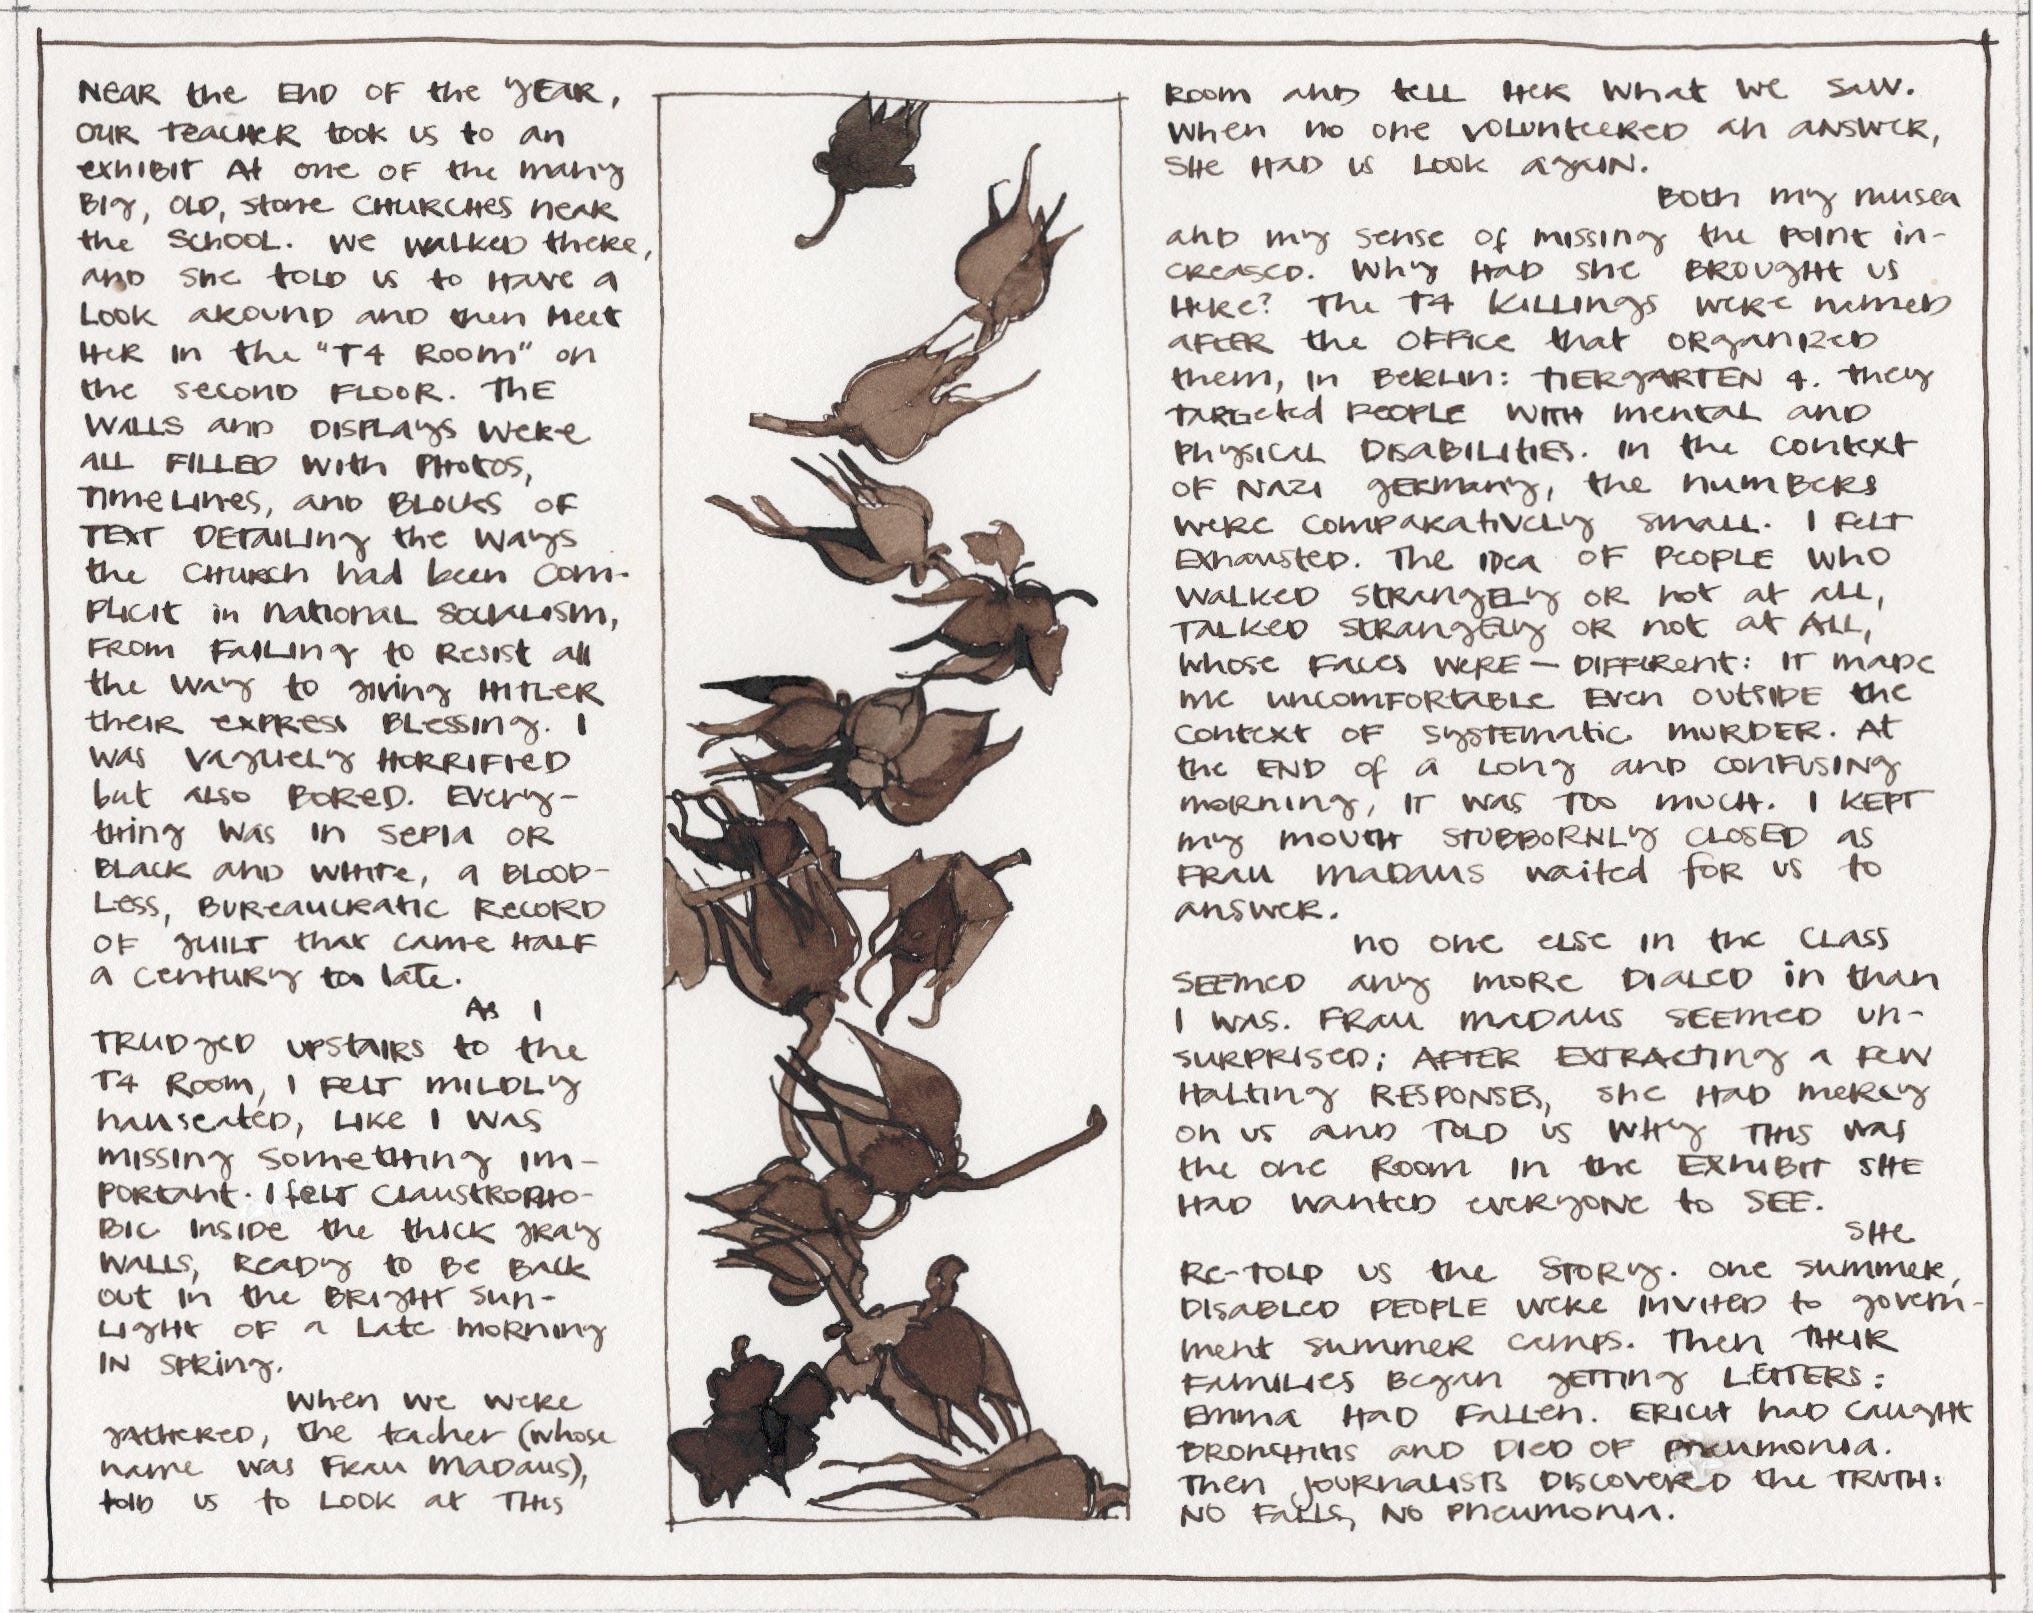 Near the end of the year,
our teacher took us to an
exhibit at one of the many
big, old, stone churches near
the school. We walked there,
and she told us to have a
look around and then meet
her in the "T4 Room" on
the second floor. The
walls and displays were
all filled with photos,
timelines, and blocks of
text detailing the ways
the church had been com-
plicit in national socialism,
from failing to resist all
the way to giving Hitler
their express blessing. I
was vaguely horrified
but also bored. Every-
thing was in sepia or
black and white, a blood-
less, bureaucratic record
of guilt that came half
a century too late.
As I
trudged upstairs to the
T4 Room, I felt mildly
nauseated, like I was
missing something im-
portant. I felt claustropho-
bic inside the thick gray
walls, ready to be back
out in the bright sun-
light of a late morning
in spring.
When we were
gathered, the teacher (whose
name was Frau Madaus),
told us to look at this
room and tell her what we saw.
When no one volunteered an answer,
she had us look again.
Both my nausea
and my sense of missing the point in-
creased. Why had she brought us
here? The T4 killings were named
after the office that organized
them, in Berlin: Tiergarten 4. They
targeted people with mental and
physical disabilities. In the context
of Nazi Germany, the numbers
were comparatively small. I felt
exhausted. The idea of people who
walked strangely or not at all,
talked strangely or not at all,
whose faces were — different: it made
me uncomfortable even outside the
context of systematic murder. At
the end of a long and confusing
morning, it was too much. I kept
my mouth stubbornly closed as
Frau Madaus waited for us to
answer.
No one else in the class
seemed any more dialed in than
I was. Frau Madaus seemed un-
surprised; after extracting a few
halting responses, she had mercy
on us and told us why this was
the one room in the exhibit she
had wanted everyone to see.
She
re-told us the story. One summer,
disabled people were invited to govern-
ment summer camps. Then their
families began getting letters:
Emma had fallen. Erich had caught
bronchitis and died of pneumonia.
Then journalists discovered the truth:
no falls, no pneumonia.